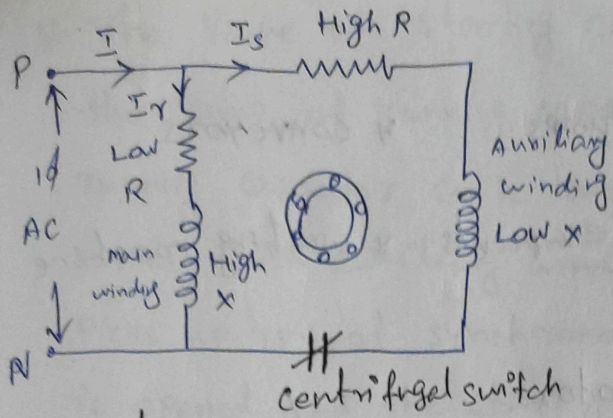 High R
I
Is
P
Ir
Low
R
1ϕ
AC
main
winding
High
X
Auxiliary
winding
Low X
N
centrifugal switch